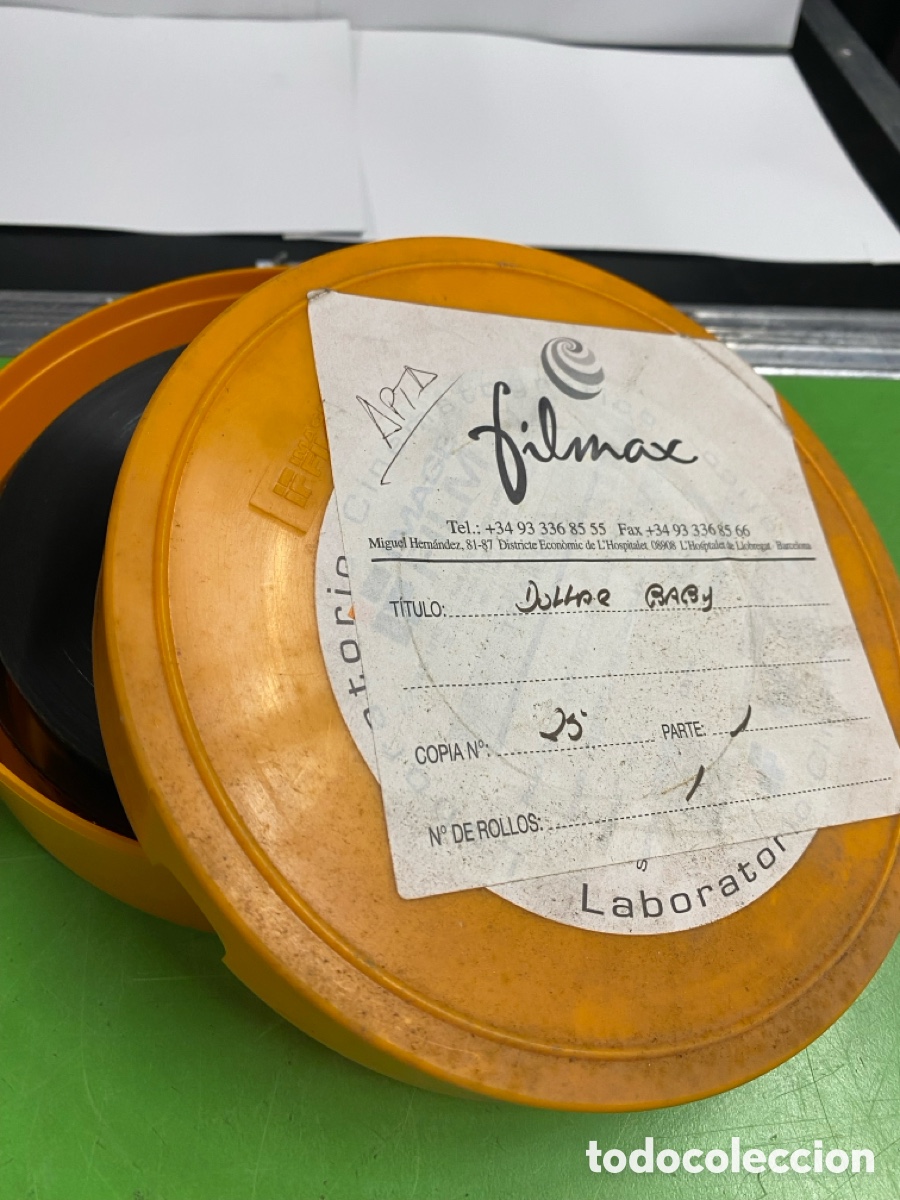 APTA
filmax
Tel.: +34 93 336 85 55 Fax +34 93 336 85 66
Miguel Hernández, 81-87 Districte Econòmic de L'Hospitalet 08908 L'Hospitalet de Llobregat - Barcelona
TÍTULO: DOLLAR BABY
COPIA Nº: 25 PARTE: 1
Nº DE ROLLOS: 1
Laborator
todocoleccion